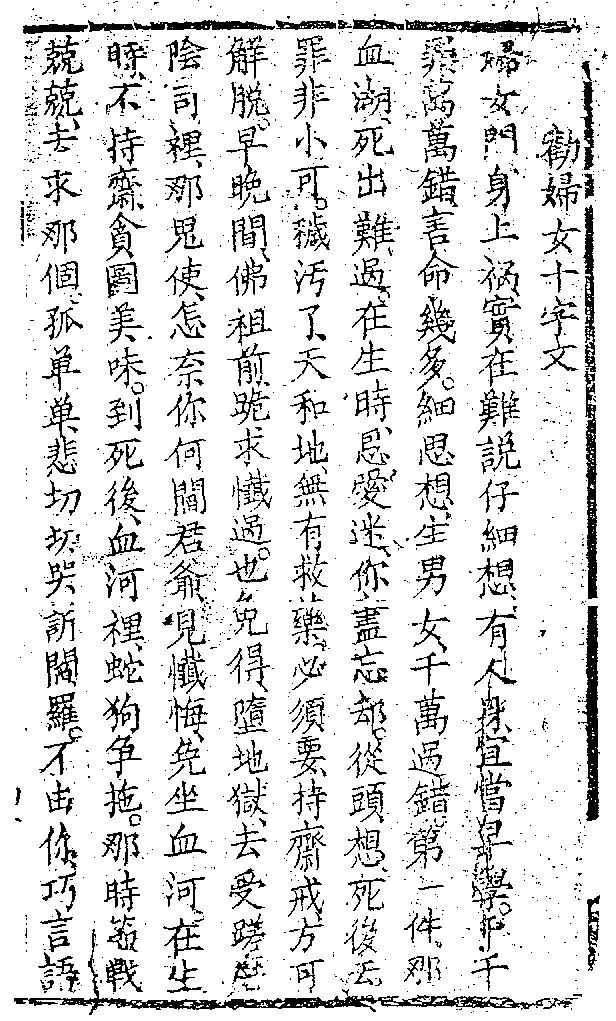 勸婦女十字文
婦女門、身上禍、實在難說仔細想、有人身、宜當早學。千千
罪、萬萬錯、害命幾多。細思想、生男女、千萬過錯、第一件、那
血湖、死出難過。在生時、恩愛迷、你盡忘却。從頭想、死後去
罪非小可。穢汚了、天和地、無有救藥、必須要、持齋戒、方可
解脫。早晚間、佛祖前、跪求懺過。也免得、墮地獄、去受蹉
陰司裡、那鬼使、怎奈你何閻君爺、見懺悔、免坐血河。在生
時、不持齋、貪圖美味。到死後、血河裡、蛇狗爭拖。那時節、戰
兢兢、去求那個。孤单单、悲切切、哭訴閻羅。不由你、巧言語